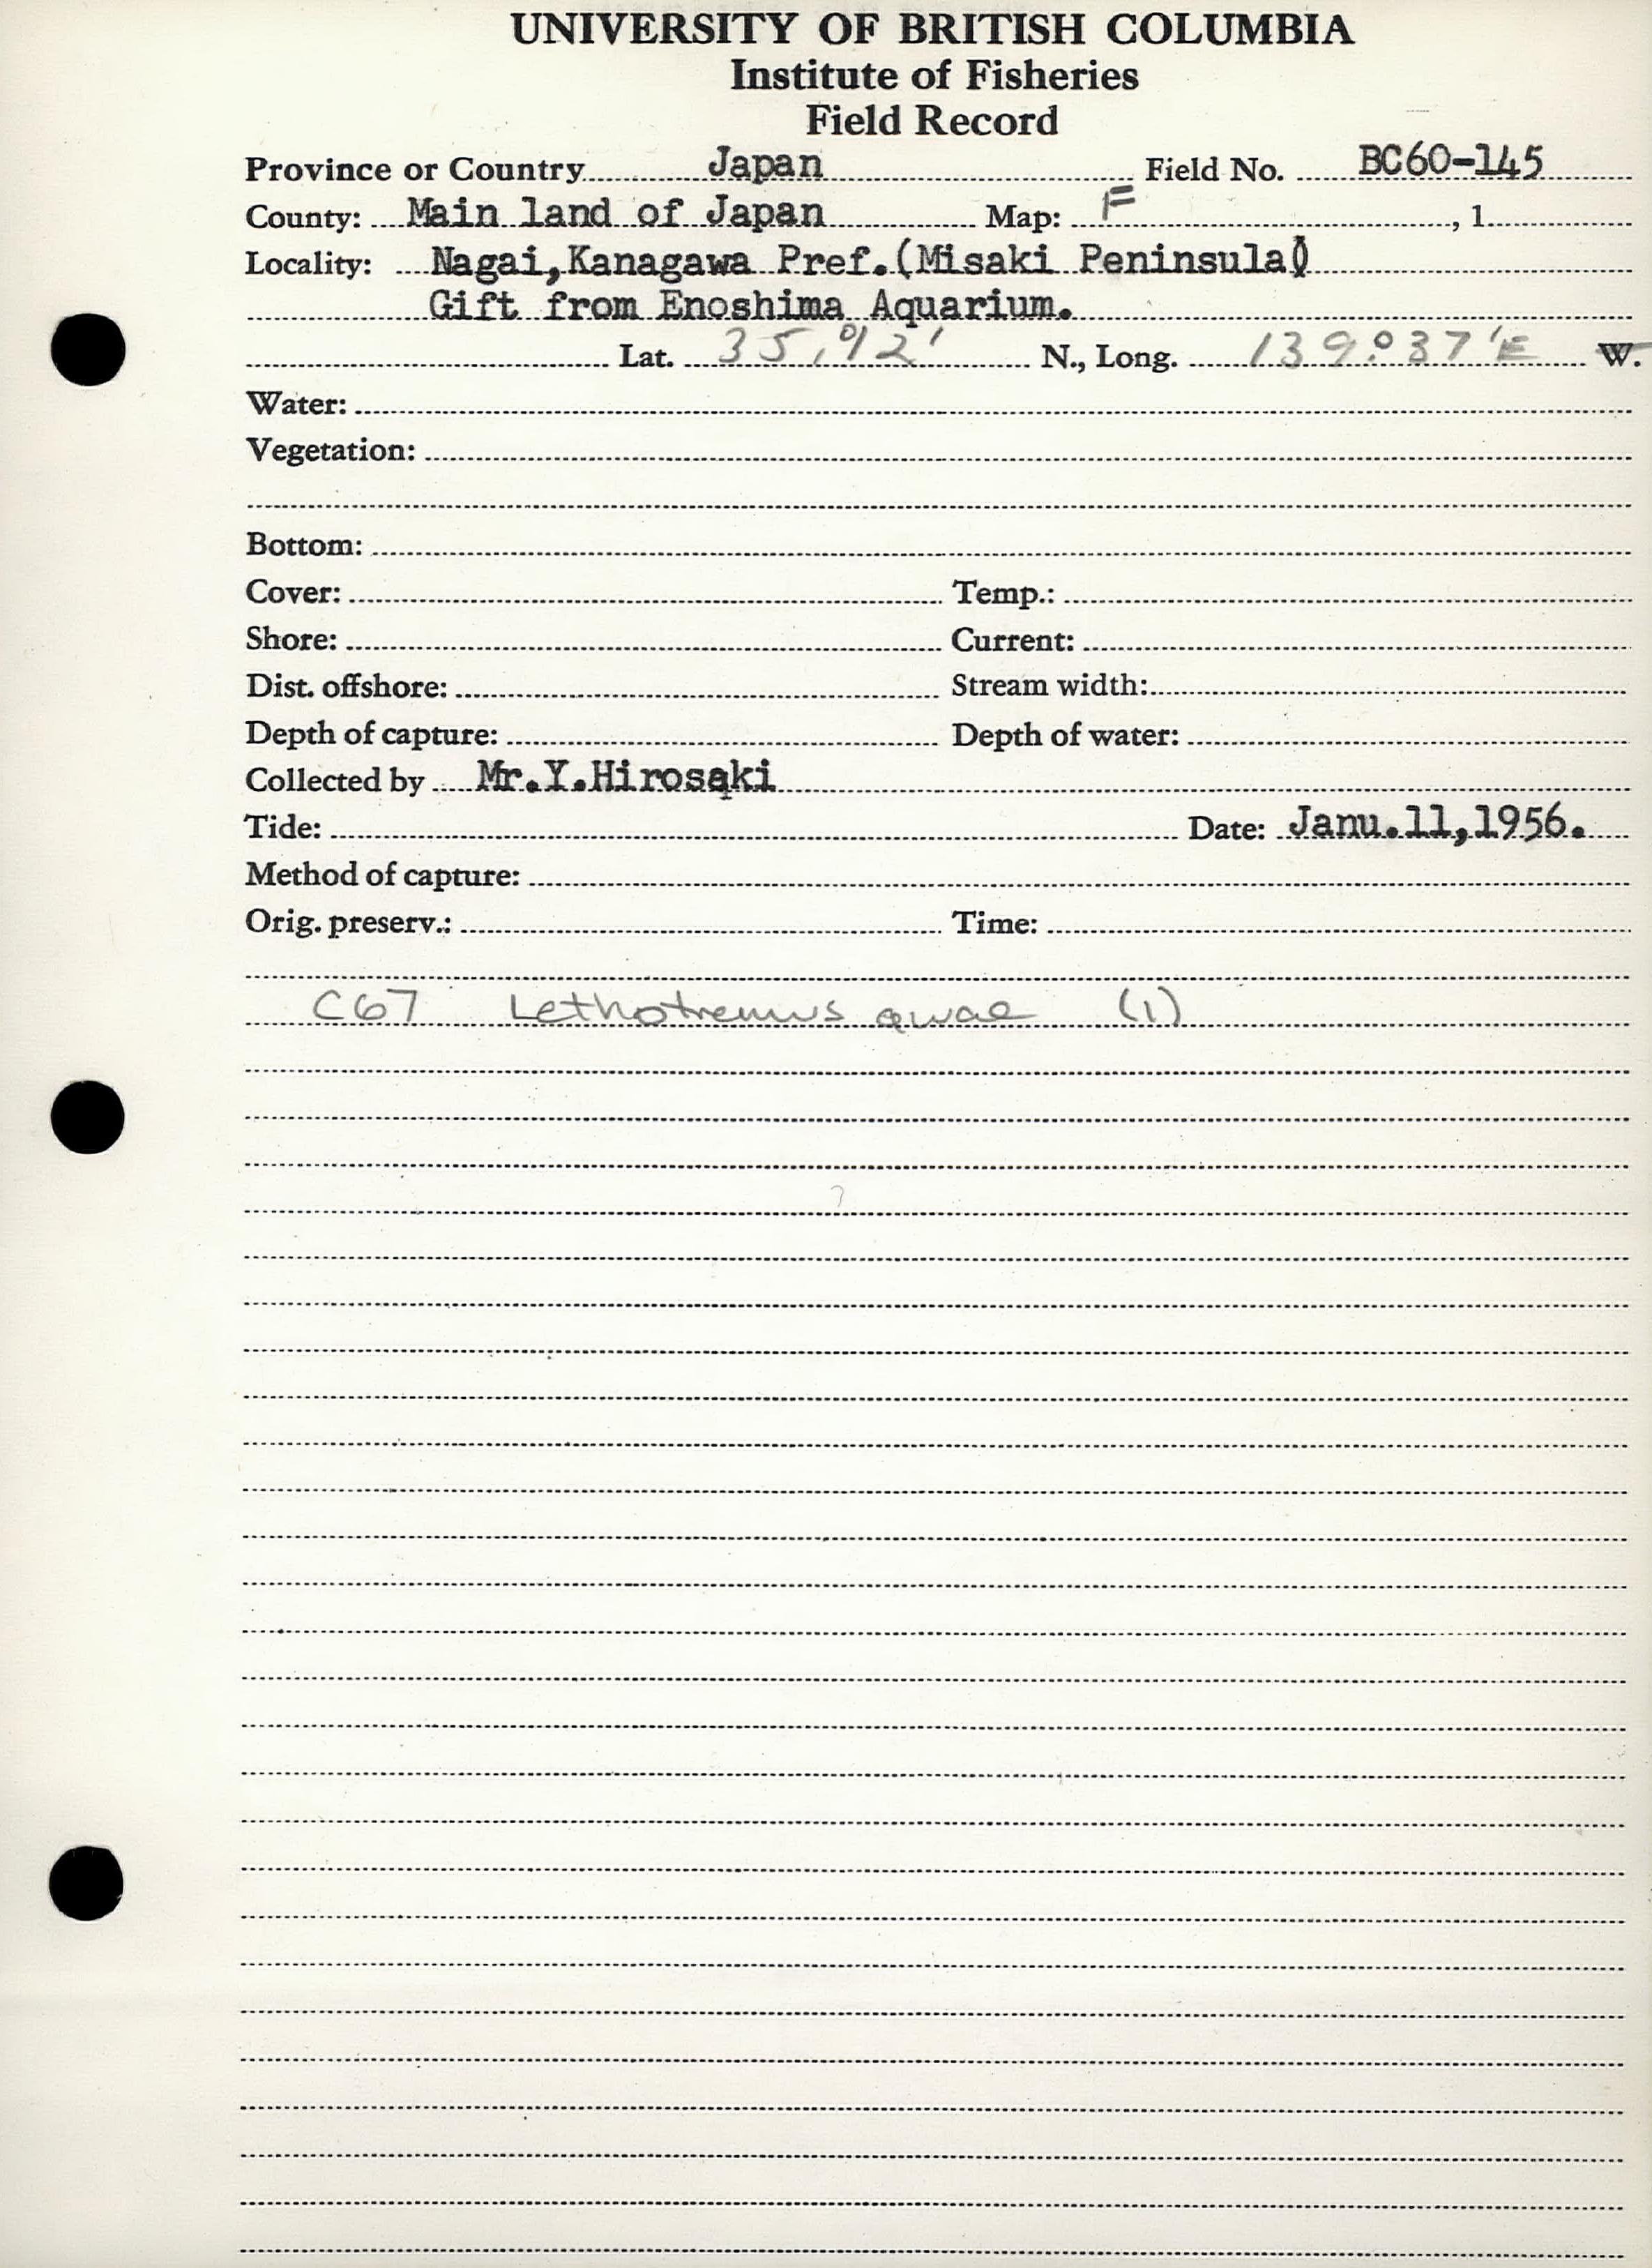 UNIVERSITY OF BRITISH COLUMBIA
Institute of Fisheries
Field Record
Province or Country Japan Field No. BC60-145
County: Main land of Japan Map: F , 1
Locality: Nagai,Kanagawa Pref.(Misaki Peninsula)
Gift from Enoshima Aquarium.
Lat. 35,°12' N., Long. 139°37'E W.
Water:
Vegetation:
Bottom:
Cover: Temp.:
Shore: Current:
Dist. offshore: Stream width:
Depth of capture: Depth of water:
Collected by Mr.Y.Hirosaki
Tide: Date: Janu.11,1956.
Method of capture:
Orig. preserv.: Time:
C67 Lethotremus awae (1)